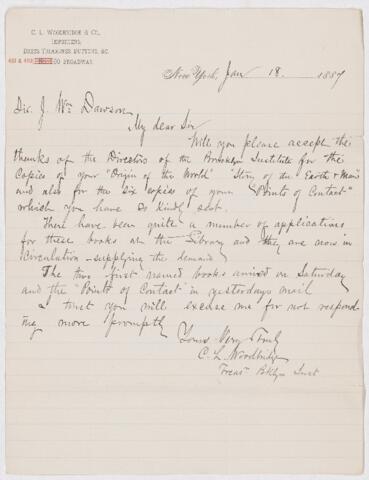 C. L. WOODBRIDGE & CO.
IMPORTERS
DRESS TRIMMINGS BUTTONS, &C.
BROADWAY.
New York, Jan 18. 1887
Sir J. Wm Dawson
My dear Sir
Will you please accept the
thanks of the Directors of the Brooklyn Institute for the
Copies of your "Origin of the World" "Story of the Earth & Man"
and also for the six copies of your "Points of Contact"
which you have so kindly sent.
There have been quite a number of applications
for these books at the Library and they are now in
Circulation - supplying the demand
The two first named books arrived on Saturday
and the "Points of Contact" in yesterdays mail
I trust you will excuse me for not respond-
ing more promptly
Yours Very Truly
C. L. Woodbridge
Treas Bklyn Inst